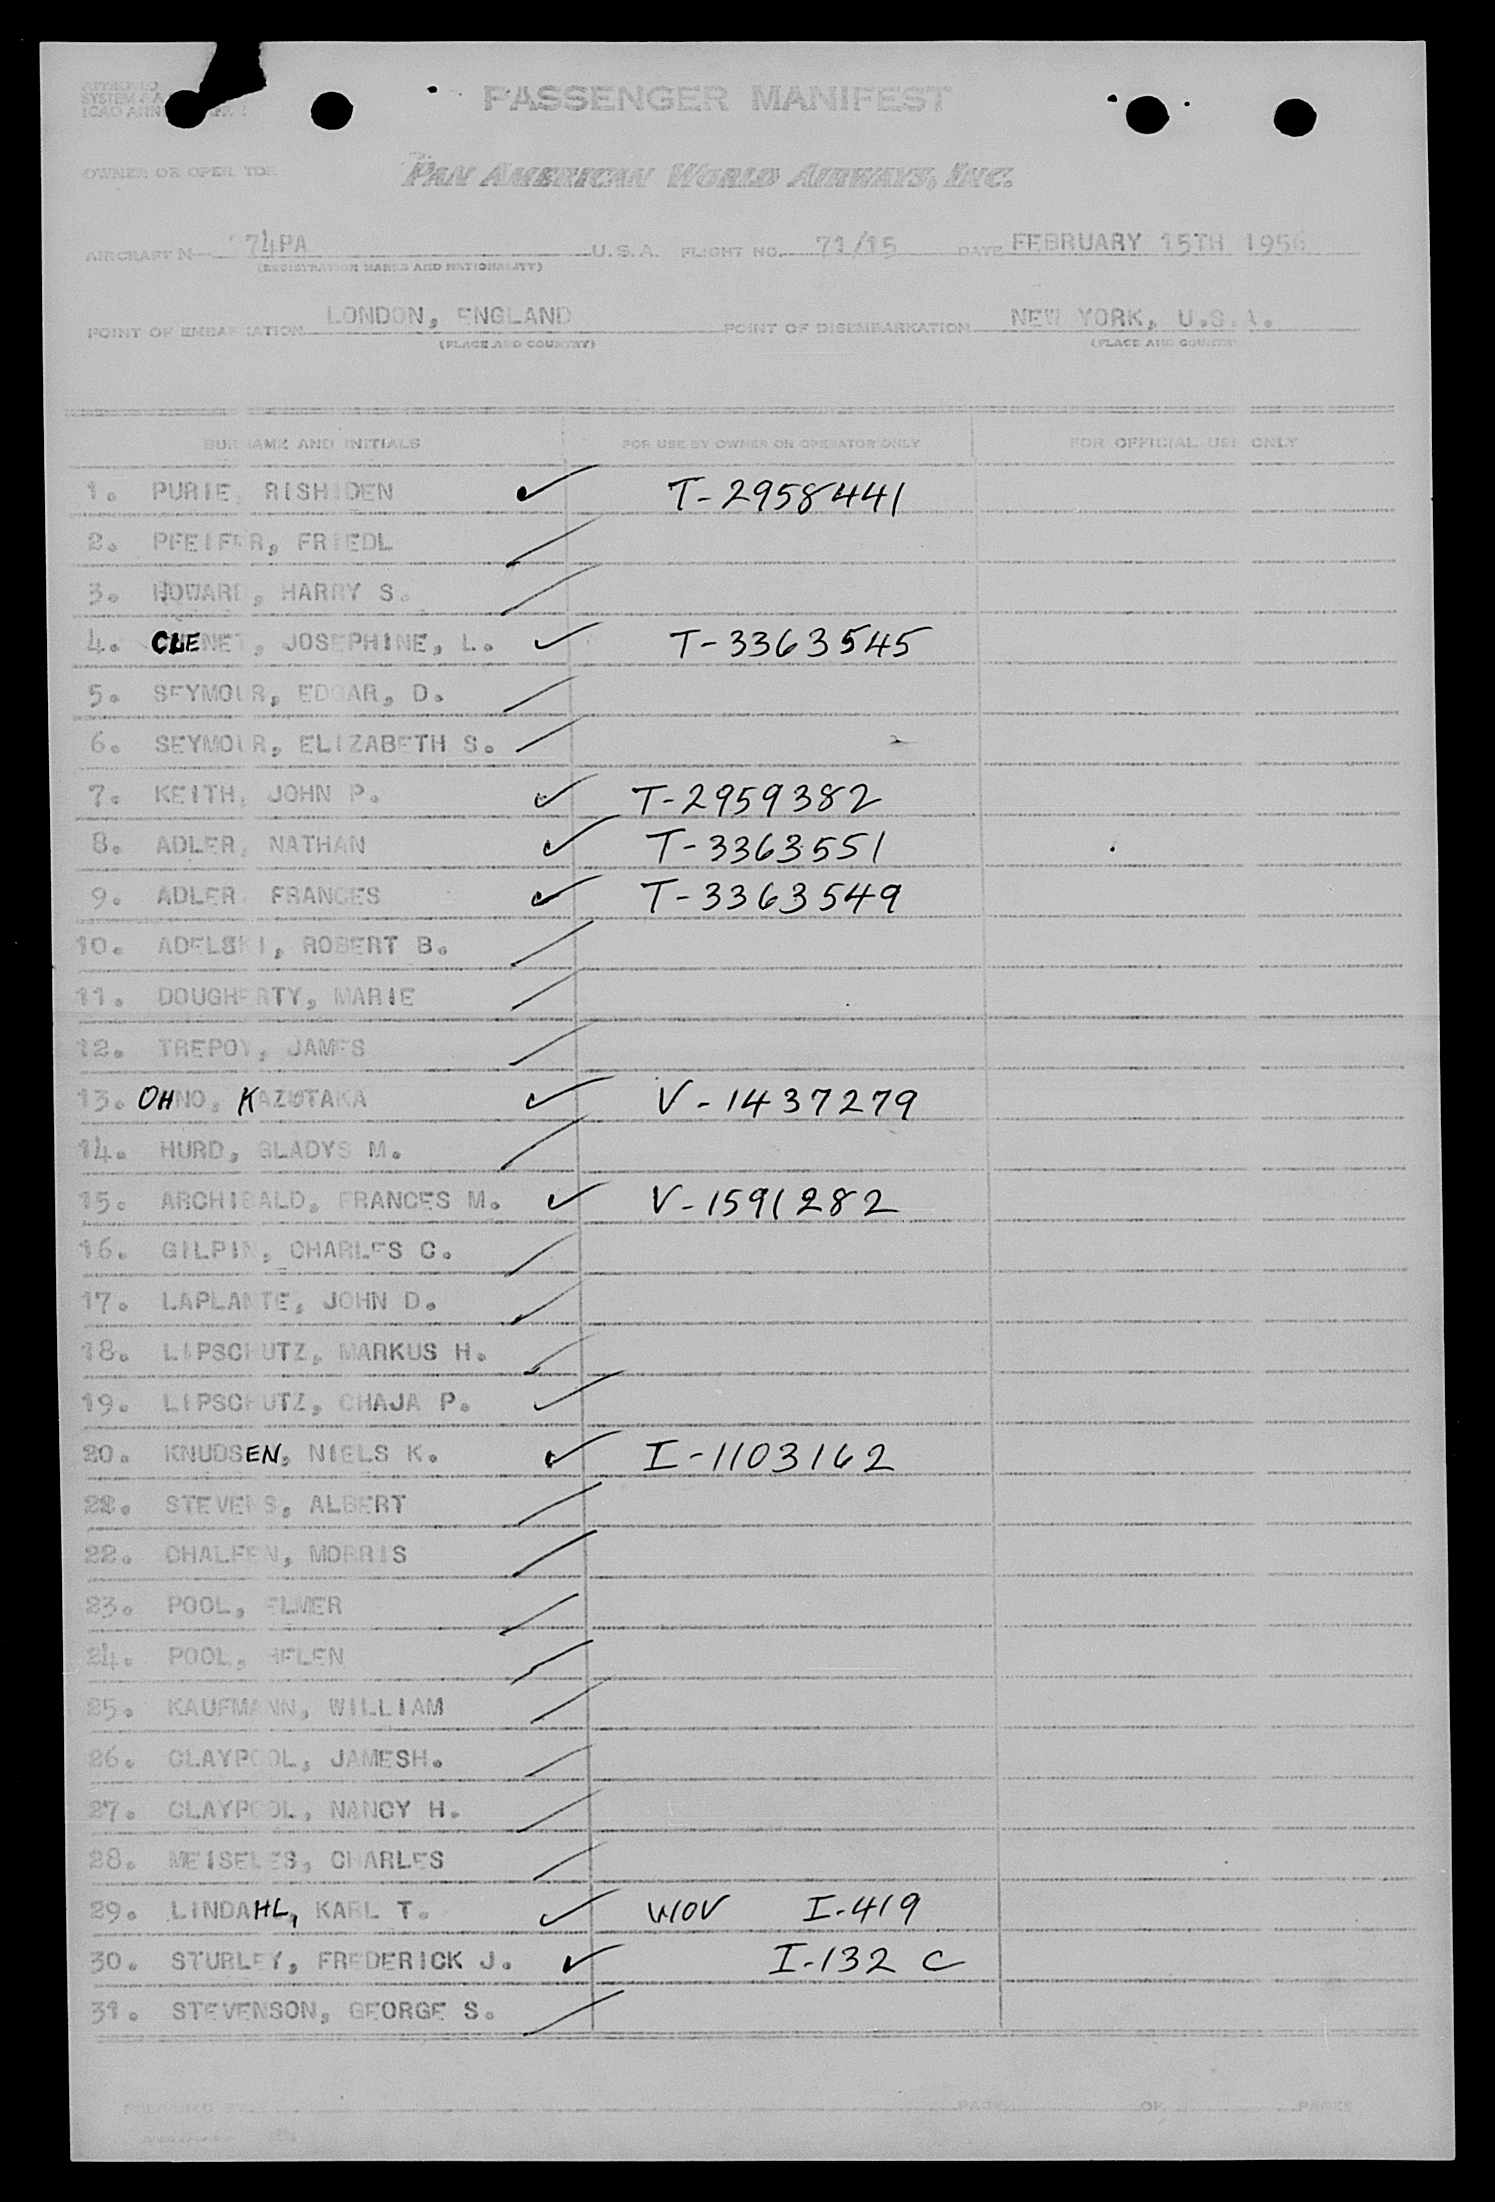 PASSENGER MANIFEST
OWNER OR OPERATOR
PAN AMERICAN WORLD AIRWAYS, INC.
AIRCRAFT N 74PA U.S.A. FLIGHT NO. 71/15 DATE FEBRUARY 15TH 1956
(REGISTRATION MARKS AND NATIONALITY)
POINT OF EMBARKATION LONDON, ENGLAND POINT OF DISEMBARKATION NEW YORK, U.S.A.
(PLACE AND COUNTRY) (PLACE AND COUNTRY)
SURNAME AND INITIALS FOR USE BY OWNER OR OPERATOR ONLY FOR OFFICIAL USE ONLY
1. PURIE, RISHIDEN ✓ T-2958441
2. PFEIFER, FRIEDL
3. HOWARD, HARRY S.
4. CLENET, JOSEPHINE, L. ✓ T-3363545
5. SEYMOUR, EDGAR, D.
6. SEYMOUR, ELIZABETH S.
7. KEITH, JOHN P. ✓ T-2959382
8. ADLER, NATHAN ✓ T-3363551
9. ADLER, FRANCES ✓ T-3363549
10. ADELSKI, ROBERT B.
11. DOUGHERTY, MARIE
12. TREPOY, JAMES
13. OHNO, KAZUTAKA ✓ V-1437279
14. HURD, GLADYS M.
15. ARCHIBALD, FRANCES M. ✓ V-1591282
16. GILPIN, CHARLES C.
17. LAPLANTE, JOHN D.
18. LIPSCHUTZ, MARKUS H.
19. LIPSCHUTZ, CHAJA P.
20. KNUDSEN, NIELS K. ✓ I-1103162
22. STEVENS, ALBERT
22. CHALFEN, MORRIS
23. POOL, ELMER
24. POOL, HELEN
25. KAUFMANN, WILLIAM
26. CLAYPOOL, JAMESH.
27. CLAYPOOL, NANCY H.
28. MEISELES, CHARLES
29. LINDAHL, KARL T. ✓ WOV I-419
30. STURLEY, FREDERICK J. ✓ I-132 C
31. STEVENSON, GEORGE S.
PAGE OF PAGES